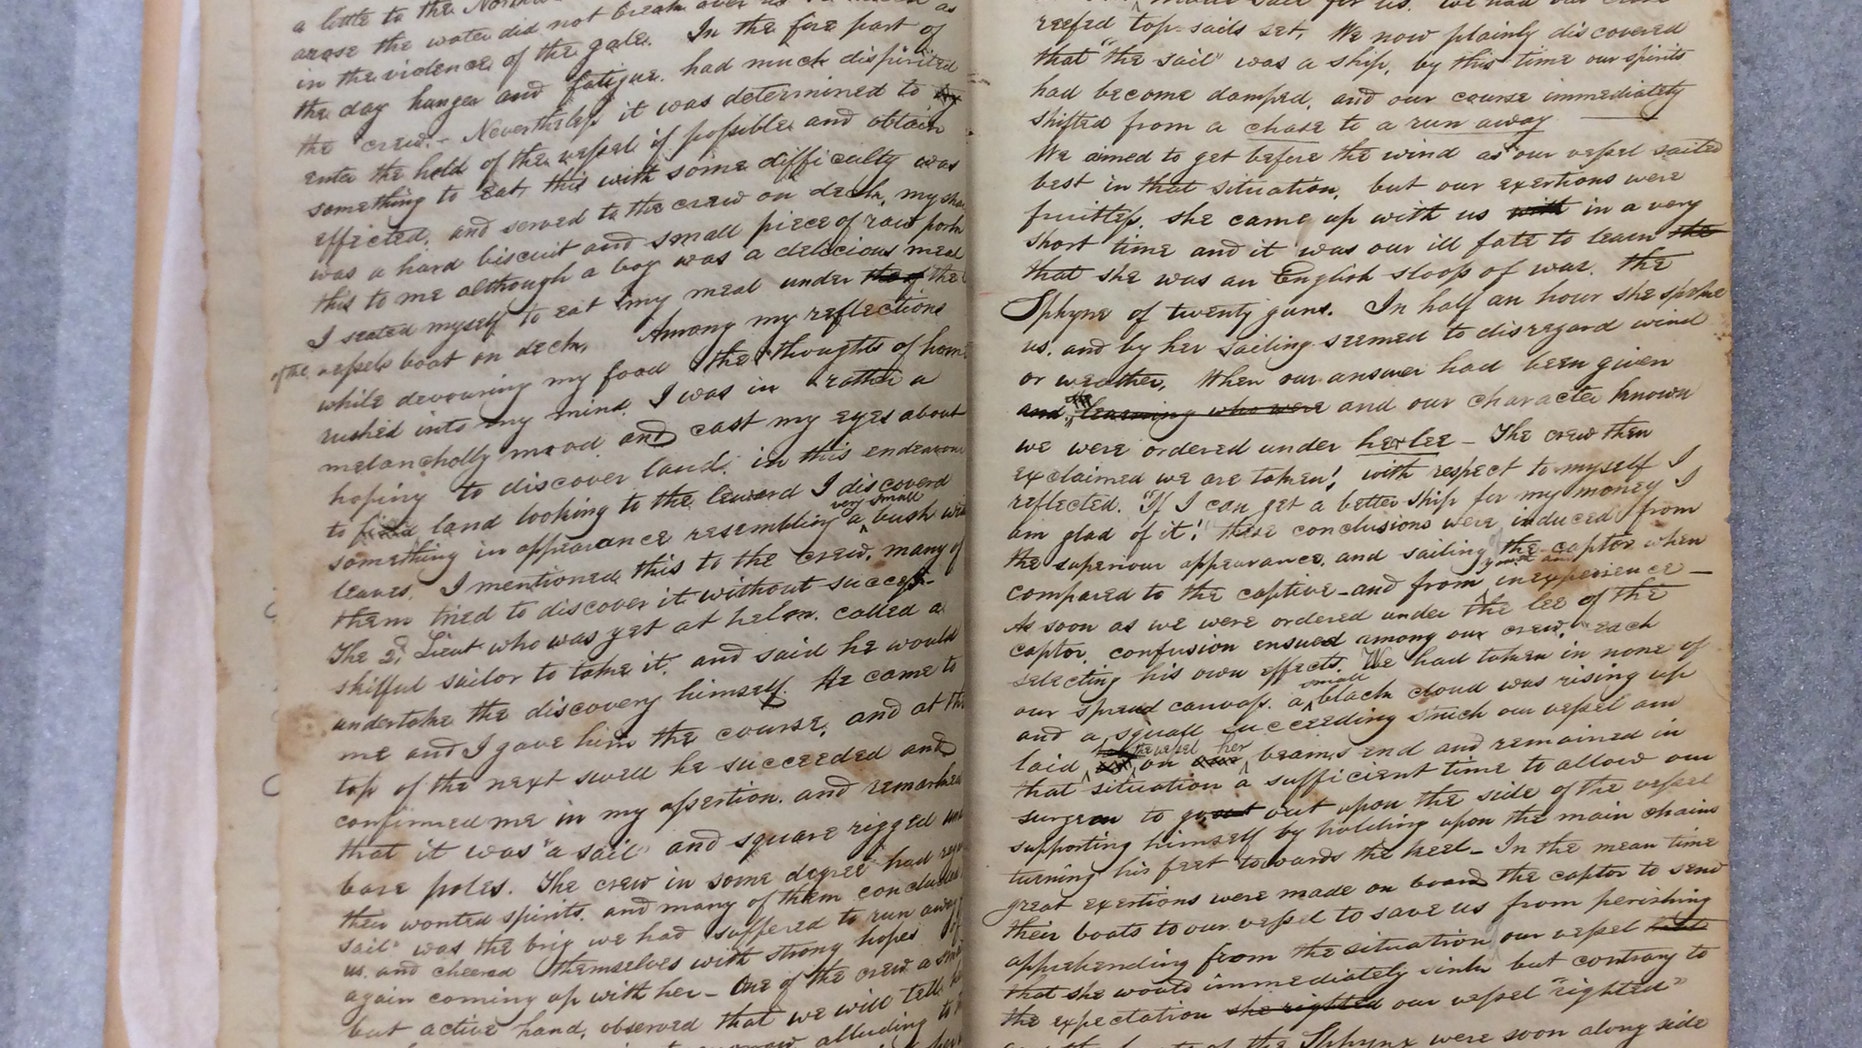 a little to the
arose the water did not break over us so much as
in the violence of the gale. In the fore part of
the day hunger and fatigue had much dispirited
the crew. - Nevertheless it was determined to
enter the hold of the vessel if possible and obtain
something to eat, this with some difficulty was
effected, and served to the crew on deck, my
was a hard biscuit and small piece of raw pork
this to me although a boy was a delicious meal
I seated myself to eat my meal under the of the
of the vessels boat on deck, Among my reflections
while devouring my food the thoughts of home
rushed into my mind. I was in rather a
melancholly mood, and cast my eyes about
hoping to discover land, in this endeavour
to find land looking to the leward I discoverd
something in appearance resembling a very small bush
leaves. I mentioned this to the crew. many of
them tried to discover it without success.-
The 2d. Lieut who was yet at helm. called a
skilful sailor to take it, and said he would
undertake the discovery himself. He came to
me and I gave him the course, and at the
top of the next swell he succeeded and
confirmed me in my assertion. and remarked
that it was "a sail" and square rigged
bare poles. The crew in some degree had
their wonted spirits, and many of them concluded
sail" was the brig we had suffered to run away
us, and cheered themselves with strong hopes of
again coming up with her - One of the crew a
but active hand, observed that we will tell
alluding to
made sail for us. We had our close
reefed top-sails set, We now plainly discovered
that "the sail" was a ship, by this time our spirits
had become damped, and our course immediately
shifted from a chase to a run away
We aimed to get before the wind as our vessel sailed
best in that situation, but our exertions were
fruitless, she came up with us with in a very
short time and it was our ill fate to learn the
that she was an English sloop of war. the
Sphynx of twenty guns. In half an hour she spoke
us, and by her sailing seemed to disregard wind
or weather, When our answer had been given
and learning who were and our character known
we were ordered under her lee - The crew then
exclaimed we are taken! with respect to myself I
reflected. "If I can get a better ship for my money I
am glad of it! these conclusions were induced from
the superiour appearance, and sailing the captor when
compared to the captive - and from youth and inexperience -
As soon as we were ordered under the lee of the
captor, confusion ensued among our crew, each
selecting his own effects. We had taken in none of
our spread canvass. a small black cloud was rising up
and a squall succeeding struck our vessel and
laid the vessel on her beams end and remained in
that situation a sufficient time to allow our
surgeon to go out upon the side of the vessel
supporting himself by holding upon the main chains
turning his feet towards the keel - In the mean time
great exertions were made on board the captor to send
their boats to our vessel to save us from perishing
apprehending from the situation our vessel
that she would immediately sink but contrary to
the expectation she righted our vessel "righted"
boats of the Sphynx were soon along side